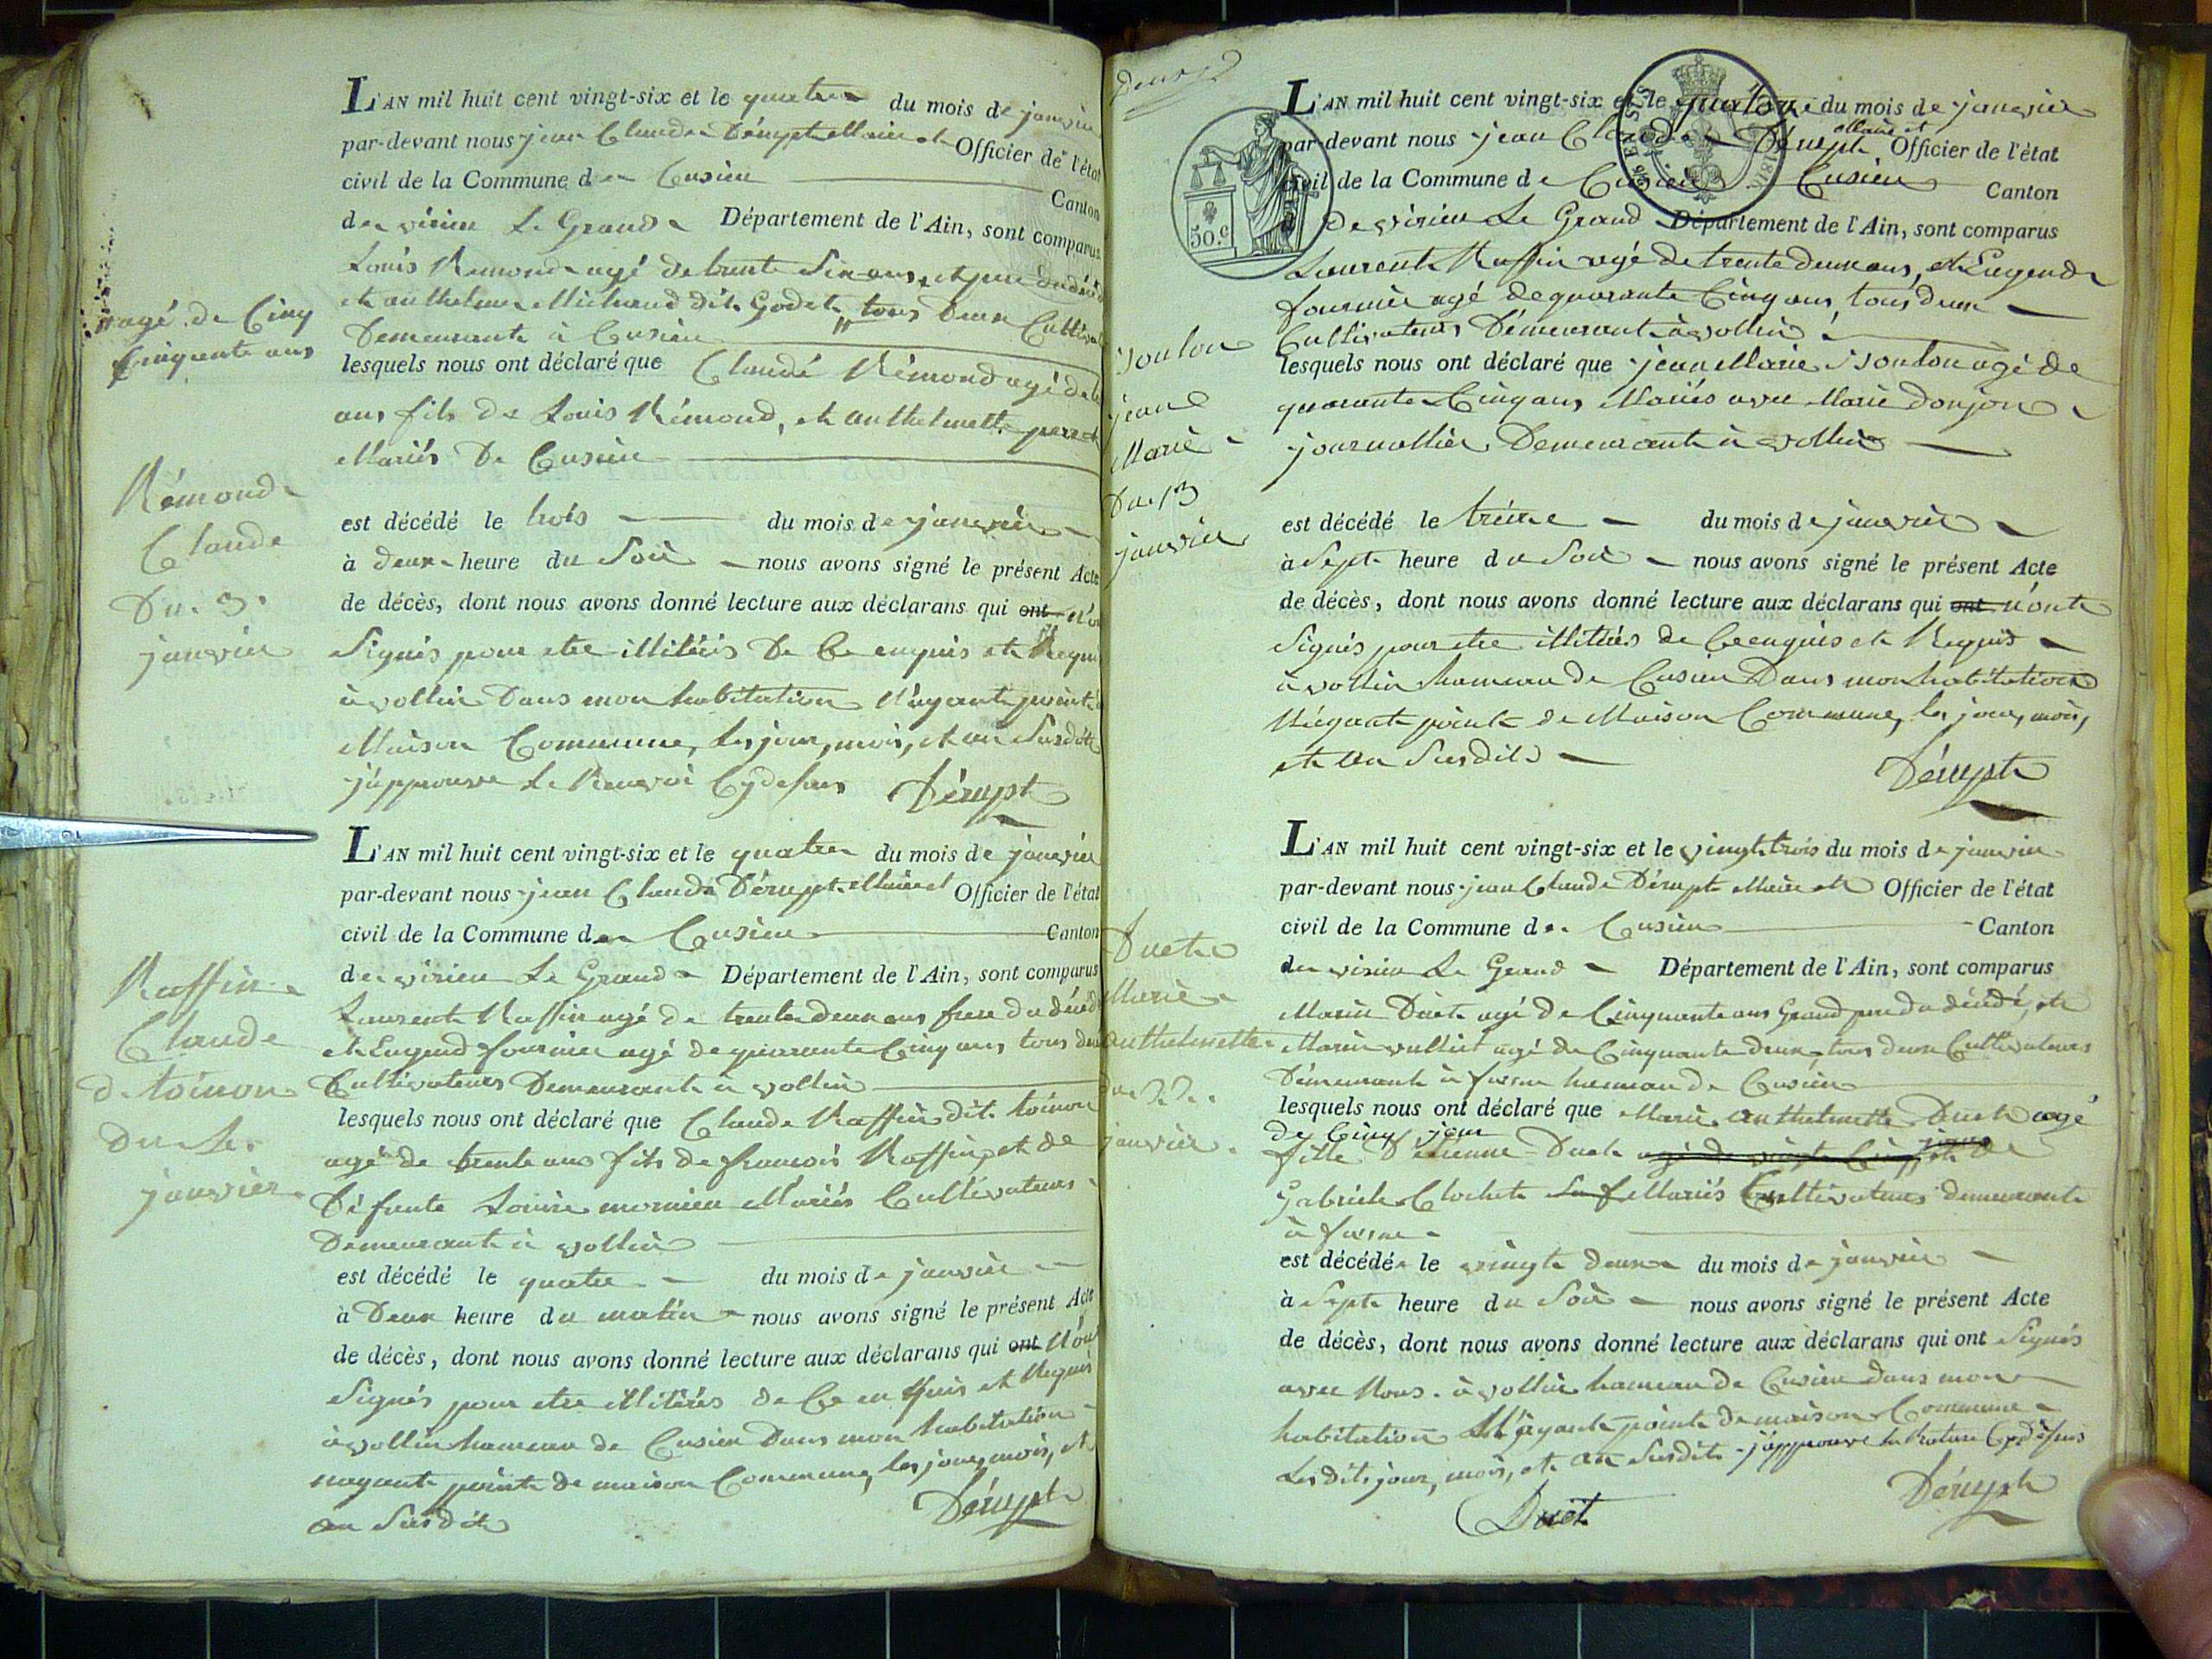 L'AN mil huit cent vingt-six et le quatre du mois de janvier
par-devant nous jean Claude Dérupt Maire et Officier de l'état
civil de la Commune de Cusieu Canton
de virieu Le Grand Département de l'Ain, sont comparus
Louis Remond agé de trente six ans, et pere du
et anthelme Michaud dit Godet, tous deux
Demeurant à Cusieu
agé de Cinq
Cinquante ans
lesquels nous ont déclaré que Claude Rémond agé de
ans fils de Louis Rémond, et anthelmette
Mariés De Cusieu
Rémond
Claude
Du 3
janvier
est décédé le trois du mois de janvier
à deux heure du Soir nous avons signé le présent Acte
de décès, dont nous avons donné lecture aux déclarans qui ont
Signés pour etre illitérés De Ce enquis et
à vollin Dans mon habitation N'ayant point
Maison Commune, les jour, mois, et an Susdit
j'approuve Le Renvoi Cydessus Dérupt
L'AN mil huit cent vingt-six et le quatre du mois de janvier
par-devant nous jean Claude Dérupt Maire et Officier de l'état
civil de la Commune de Cusieu Canton
de virieu Le Grand Département de l'Ain, sont comparus
Laurent Raffin agé de trente deux ans frere du
et Eugend fournier agé de quarante Cinq ans tous
Cultivateurs Demeurant à vollin
Raffin
Claude
d. toinon
Du 4
janvier
lesquels nous ont déclaré que Claude Raffin dit toinon
agé de trente ans fils de francois Raffin, et de
Défunte Louise mornieu Mariés Cultivateurs
Demeurant à vollin
est décédé le quatre du mois de janvier
à Deux heure du matin nous avons signé le présent Acte
de décès, dont nous avons donné lecture aux déclarans qui ont
Signés pour etre illitérés de Ce en quis et Requis
à vollin hameau de Cusieu Dans mon habitation
nayant point de maison Commune, les jour, mois, et
an Susdit Dérupt
L'AN mil huit cent vingt-six et le quatorze du mois de janvier
par-devant nous jean Claude Dérupt Maire et Officier de l'état
civil de la Commune de Cusieu Cusieu Canton
de virieu Le Grand Département de l'Ain, sont comparus
50.c
Laurent Raffin agé de trente deux ans, et Eugend
fournier agé de quarante Cinq ans, tous deux
Cultivateurs Demeurant à vollin
lesquels nous ont déclaré que jean Marie agé de
quarante Cinq ans Mariés avec Marie Donjon
journallier Demeurant à vollin
jean
Marie
Du 13
janvier
est décédé le treize du mois de janvier
à Sept heure du Soir nous avons signé le présent Acte
de décès, dont nous avons donné lecture aux déclarans qui ont n'ont
Signés pour etre illitérés de Ce enquis et Requis
à vollin hameau de Cusieu Dans mon habitation
N'ayant point de Maison Commune, les jour, mois,
et an Susdit
Dérupt
L'AN mil huit cent vingt-six et le vingt trois du mois de janvier
par-devant nous jean Claude Dérupt Maire et Officier de l'état
civil de la Commune de Cusieu Canton
de virieu Le Grand Département de l'Ain, sont comparus
Marin Duet agé de Cinquante ans Grand pere du décédé, et
Marin vulliet agé de Cinquante deux tous deux Cultivateurs
Demeurant à hameau de Cusieu
Duet
Marie
anthelmette
du 22
janvier
lesquels nous ont déclaré que Marie anthelmette Duet agé
de Cinq jour
fille D'étienne Duet
Gabriele Clochet Mariés Cultivateurs demeurant
à
est décédée le vingt deux du mois de janvier
à Sept heure du Soir nous avons signé le présent Acte
de décès, dont nous avons donné lecture aux déclarans qui ont Signés
avec Nous. à vollin hameau de Cusieu dans mon
habitation N'ayant point de maison Commune
Les dits jour, mois, et an Susdit j'approuve la Rature Cydessus
Duet Dérupt